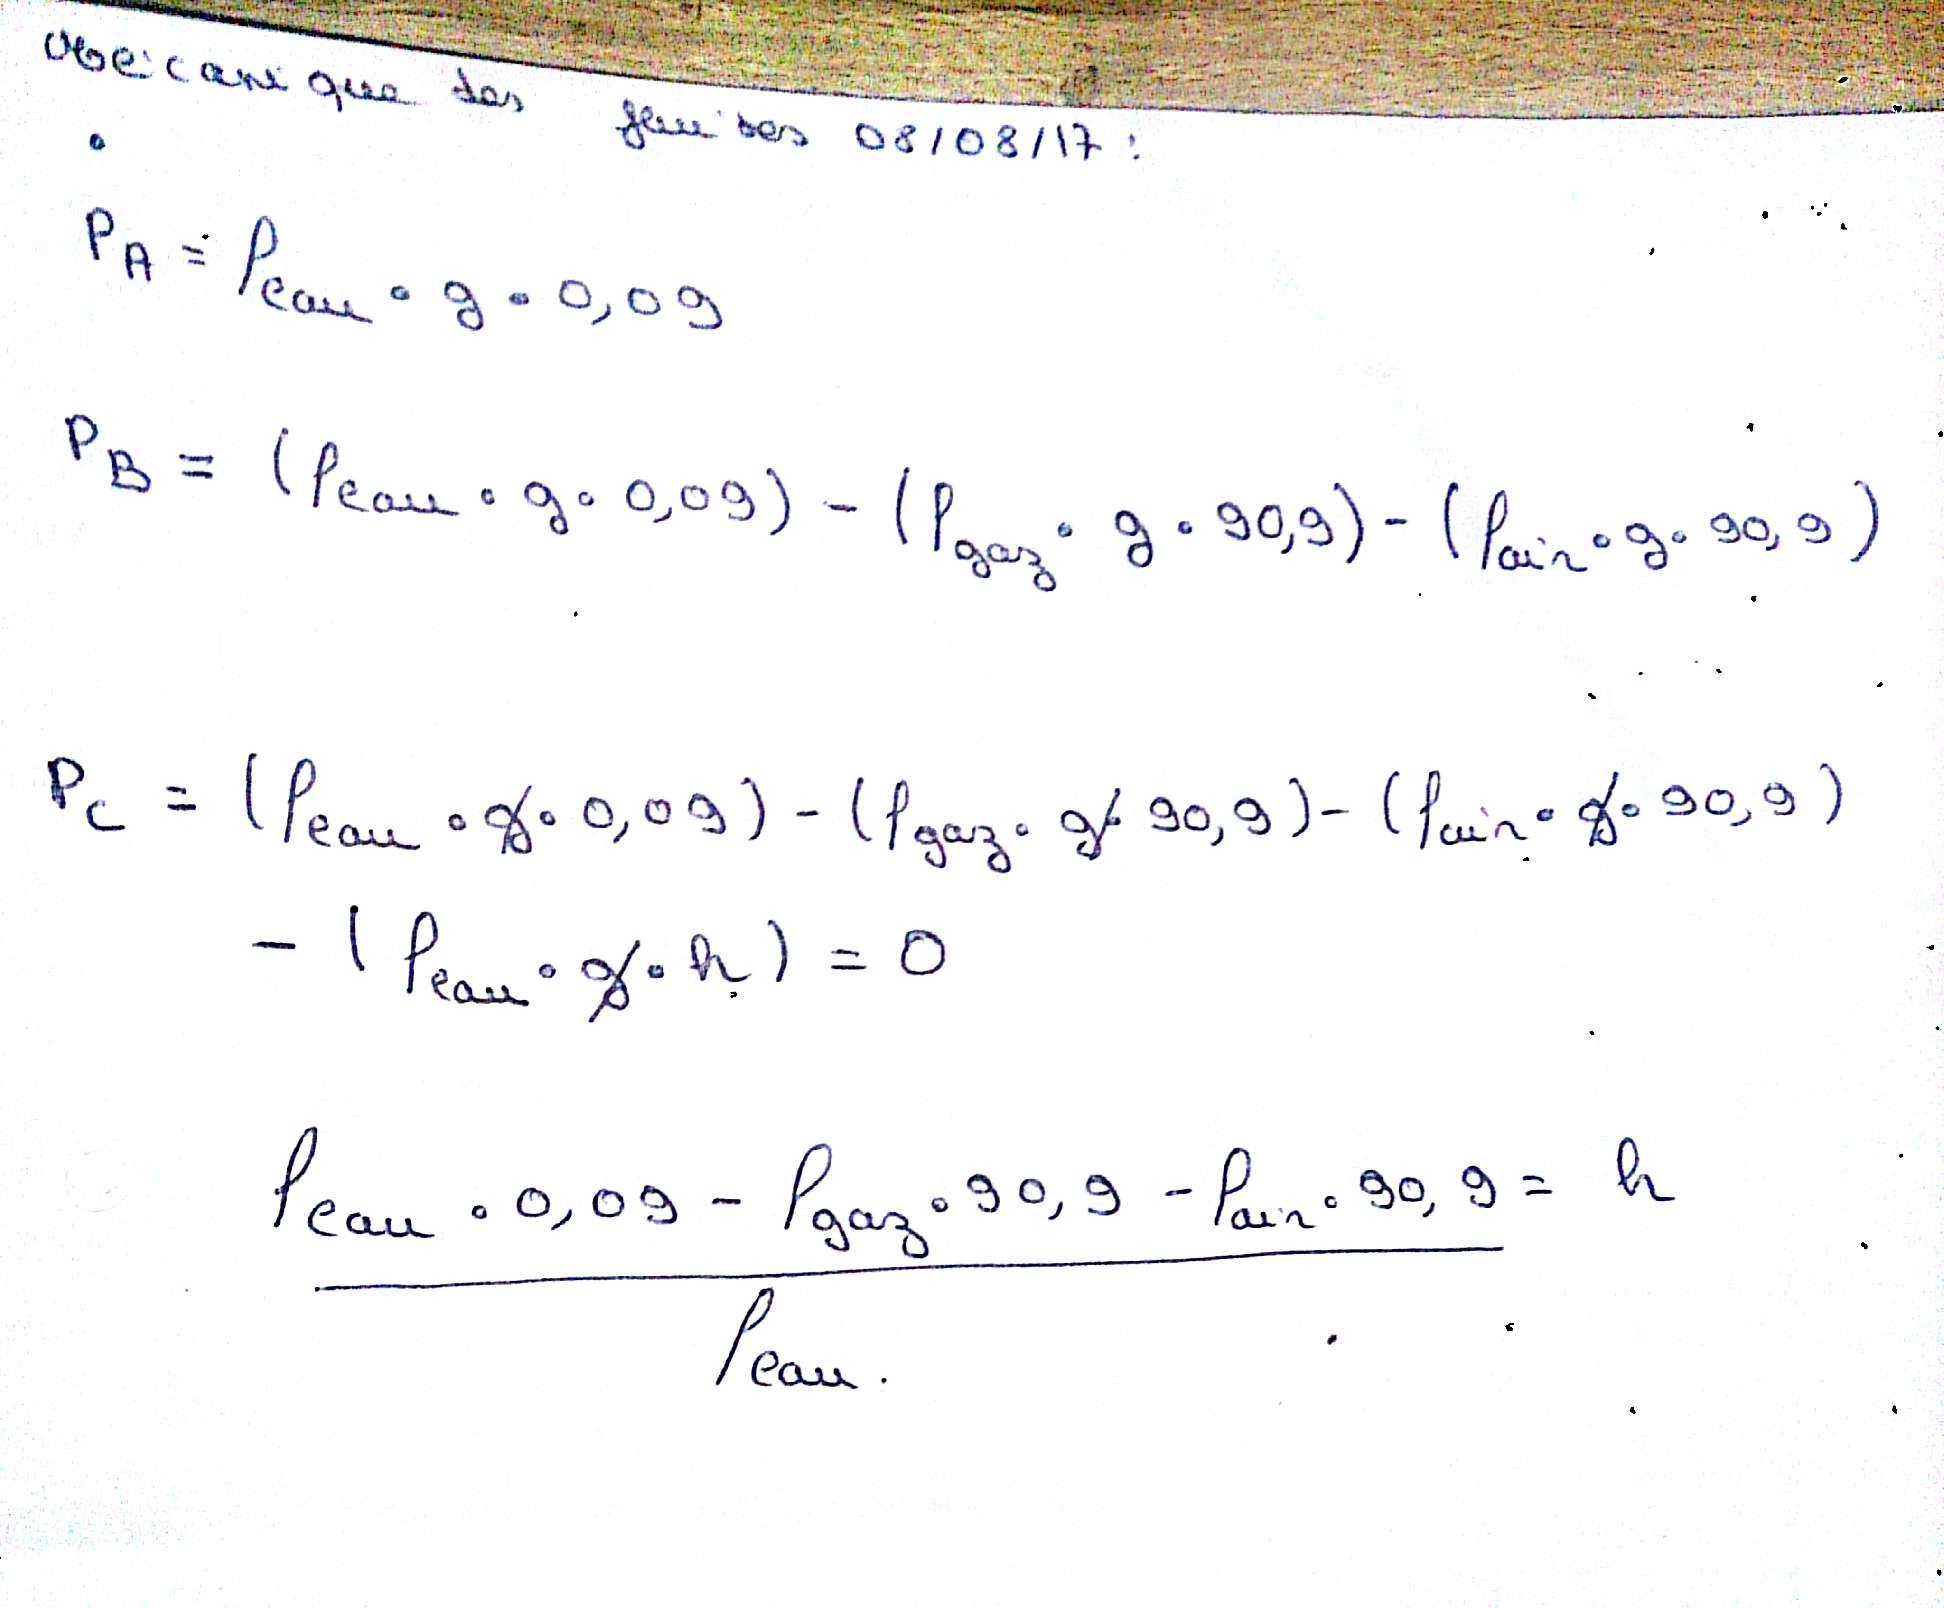 Mécanique des fluides 08/08/17 :
P_A = ρ_eau · g · 0,09
P_B = (ρ_eau · g · 0,09) - (ρ_gaz · g · 90,9) - (ρ_air · g · 90,9)
P_C = (ρ_eau · g · 0,09) - (ρ_gaz · g · 90,9) - (ρ_air · g · 90,9)
- (ρ_eau · g · h) = 0
ρ_eau · 0,09 - ρ_gaz · 90,9 - ρ_air · 90,9 = h
ρ_eau.